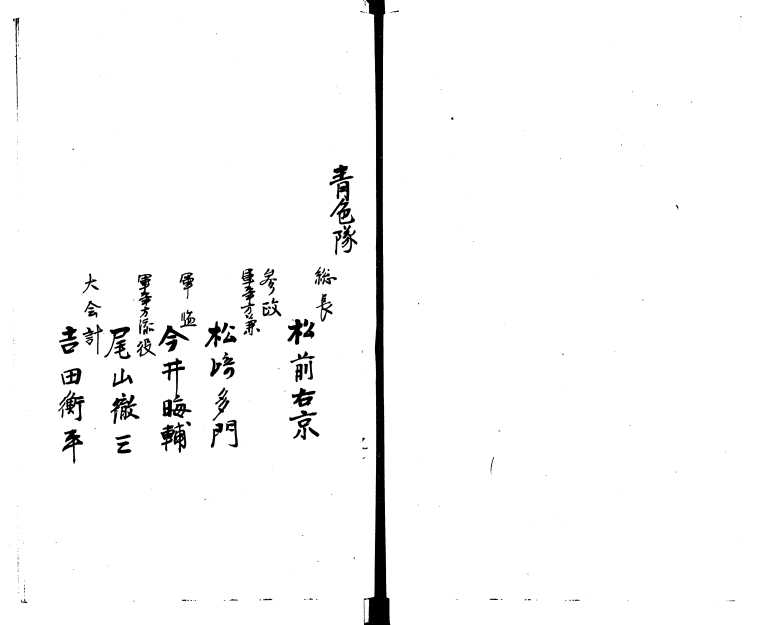 青色隊
総長
松前右京
参政
軍事方兼
松崎多門
軍監
今井晦輔
軍事方添役
尾山徹三
大会計
吉田衡平